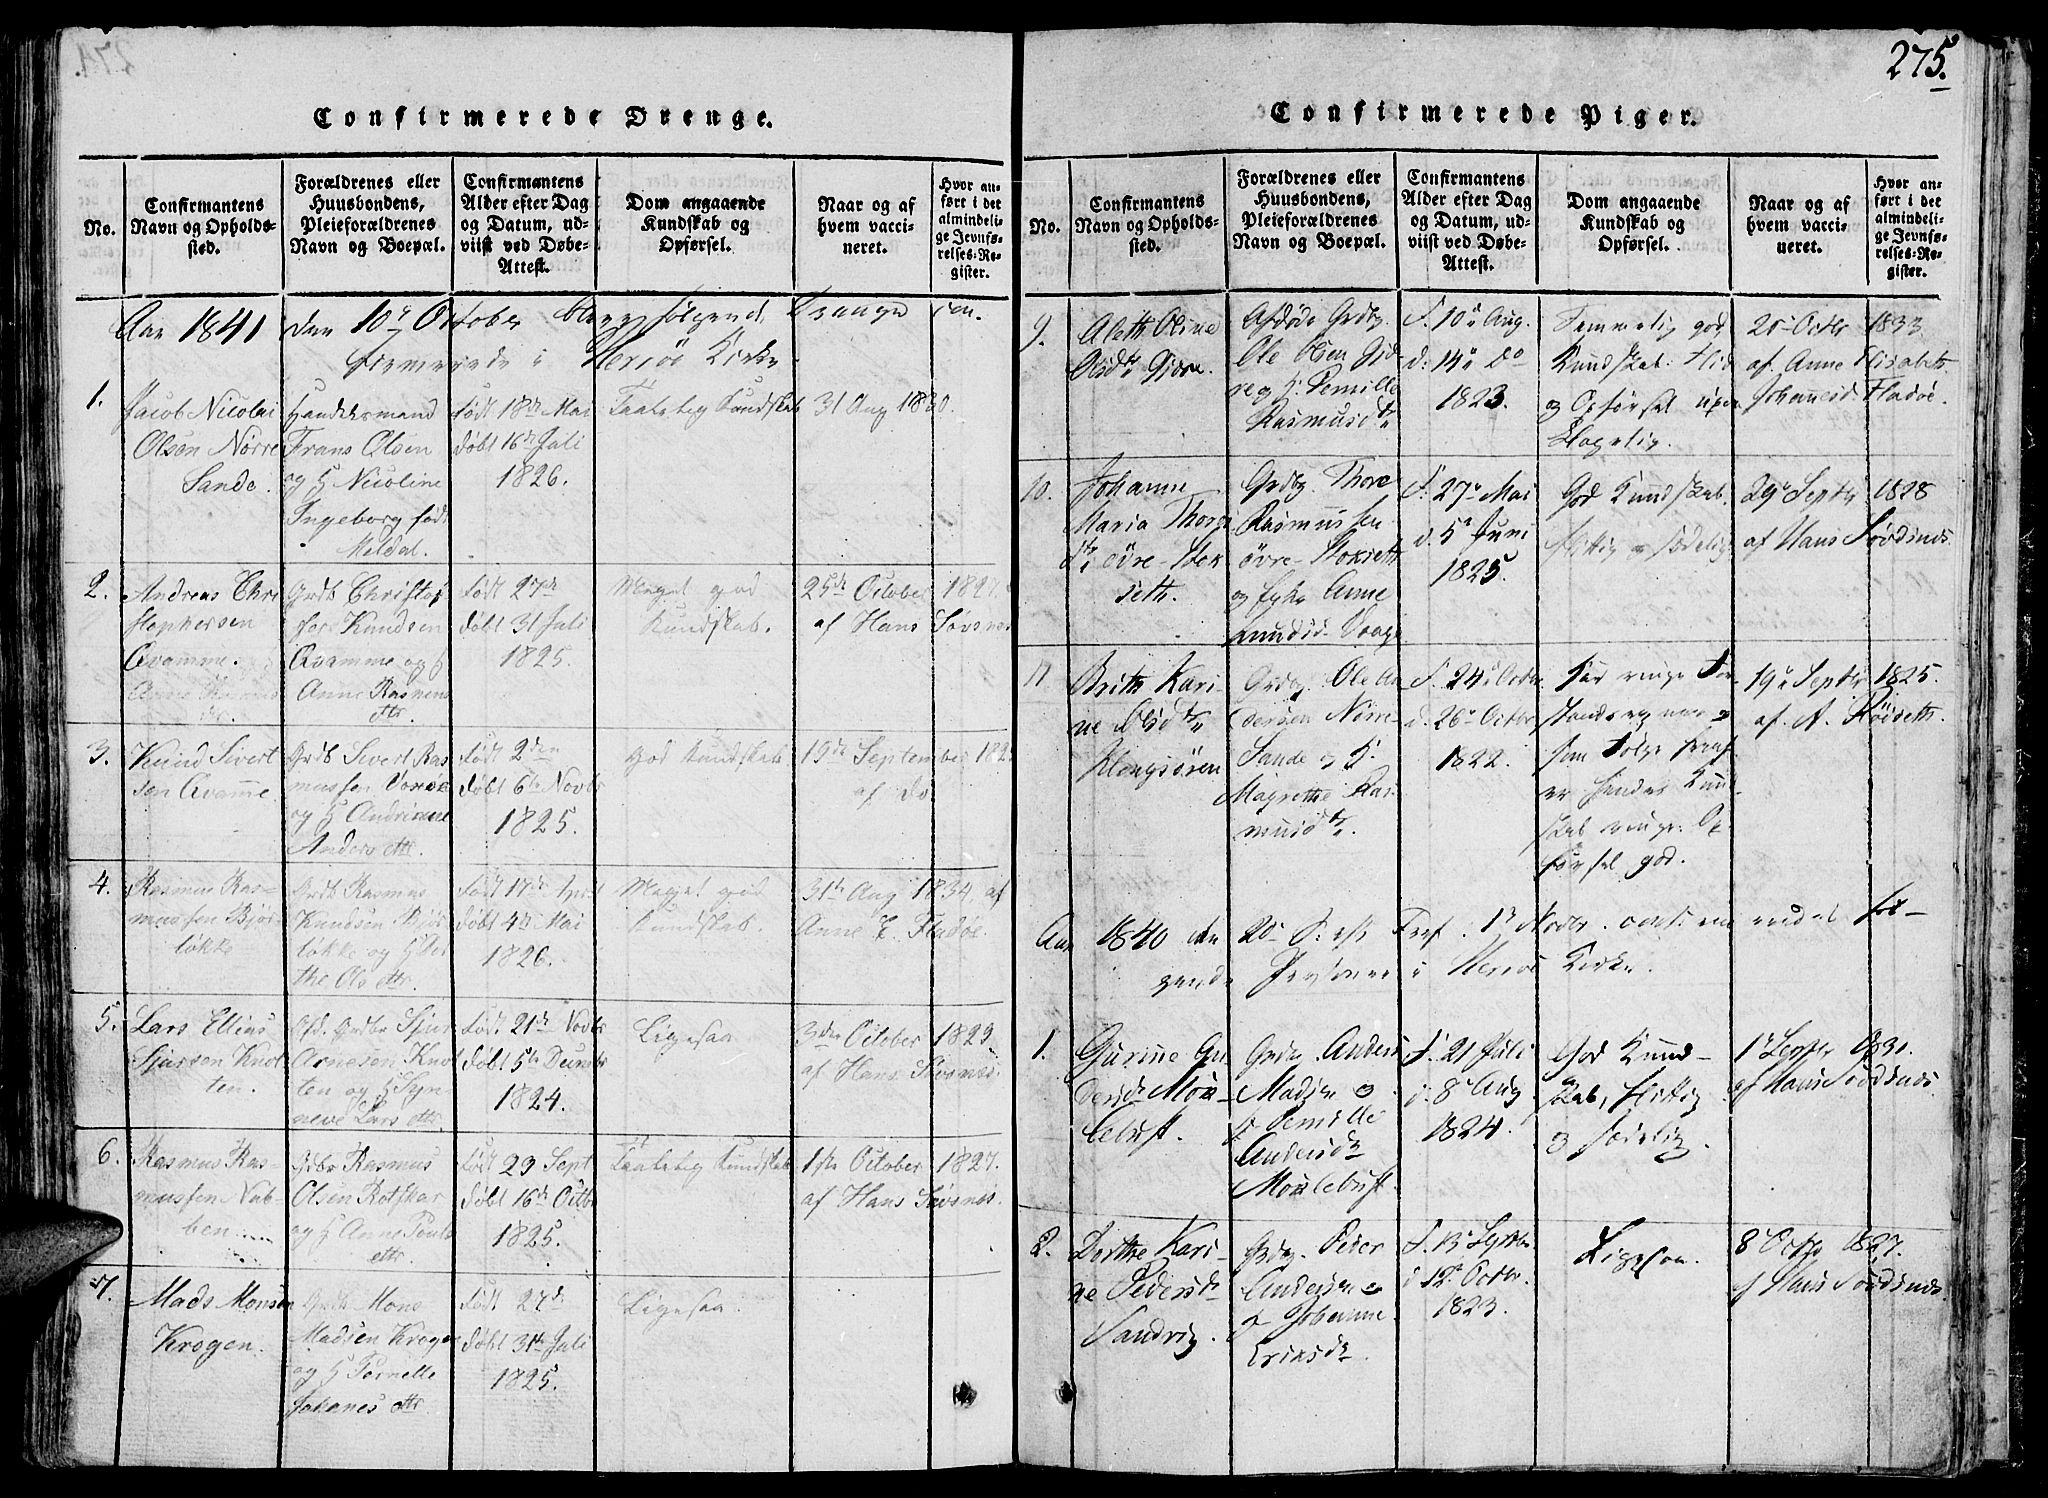 275.
Confirmerede Drenge.
No.
Confirmantens
Navn og Opholds-
sted.
Forældrenes eller
Huusbondens,
Pleieforældrenes
Navn og Boepæl.
Confirmantens
Alder efter Dag
og Datum, ud-
viist ved Døbe-
Attest.
Dom angaaende
Kundskab og
Opførsel.
Naar og af
hvem vacci-
neret.
Hvor an-
ført i det
almindeli-
ge Jevnfø-
relses-Re-
gister.
Aar 1841 den 10de October blev følgende Drenge con-
firmerede i Herøe Kirke
1.
Jacob Nicolai
Olsen Nørre
Sande.
Handelsmand
Frans Olsen
og H Nicoline
Ingeborg født
Meldal.
Født 18de Mai
døbt 16de Juli
1826.
Taalelig Kundskab
31 Aug 1830.
2.
Andreas Chri
stophersen
Qvamme.
Grdb Christof
fer Knudsen
Qvamme og H
Anne Rasmus
dttr.
Født 27de
døbt 31 Juli
1825.
Meget god
Kundskab.
25de October 1827.
af Hans
3.
Knud Sivert
sen Qvamme.
Grdb Sivert Ras
mussen
og H
Anders dttr.
Født 2den
døbt 6te Novbr
1825.
God Kundskab
19de September
af do
4.
Rasmus Ras-
mussen Bjør
løkke
Grdb Rasmus
Knudsen Bjør
løkke og H Ber
the Ols dttr.
Født 17de April
døbt 4de Mai
1826.
Meget god
Kundskab.
31te Aug 1834 af
Anne E. Fladøe.
5.
Lars Ellias
Sjursen Knot
ten.
Afd. Grdbr Sjur
Arnesen Knot
ten og H Syn
neve Lars dttr.
Født 21de Novbr
døbt 5te Decmbr
1824.
Ligesaa
3die October 1829
af Hans
6.
Rasmus Ras-
mussen Nab-
ben
Grdbr Rasmus
Olsen
og H Anne Pouls
dttr
Født 23 Sept
døbt 16de Octbr
1825.
Taalelig Kundskab
1ste October 1827.
af Hans
7.
Mads Monsen
Krogen.
Grdb Mons
Madsen Krogen
og H Pernelle
Johanes dttr
Født 27de
døbt 31te Juli
1825.
Ligesaa.
Confirmerede Piger.
No.
Confirmantens
Navn og Opholds-
sted.
Forældrenes eller
Huusbondens,
Pleieforældrenes
Navn og Boepæl.
Confirmantens
Alder efter Dag
og Datum, ud-
viist ved Døbe-
Attest.
Dom angaaende
Kundskab og
Opførsel.
Naar og af
hvem vacci-
neret.
Hvor an-
ført i det
almindeli-
ge Jevnfø-
relses-Re-
gister.
9.
Aleth Oline
Olsdtr Gjøre.
Afdøde Grdbg.
Ole Olsen Gjø-
re og H. Pernille
Rasmusdtr
F. 10de Aug.
d: 14de Do
1823.
Temmelig god
Kundskab. Flid
og Opførsel upaa
klagelig.
20 Octbr 1833
af Anne Elisabeth
Johannesd. Fladøe.
10.
Johanne
Maria Thores
dtr øvre-Stok
seth.
Grdbg. Thore
Rasmussen
øvre-Stokseth
og Anne
Knudsd.
F. 27de Mai
d. 5te Juni
1825.
God Kundskab.
Flittig og sædelig
29de Septbr 1828
af Hans
11
Brithe Kari-
ne Olsdtr
Klungsøren
Grdbg. Ole An
dersen Nørre-
Sande og H.
Magrethe Ras-
musdtr.
F. 24de Octbr.
d. 26de Octbr
1822.
Har ringe For-
stands
som Følge heraf
er hendes Kund-
skab ringe. Op
førsel god.
19de Septbr 1825.
af. A. Flødseth.
Aar 1840 den 20de S: eft Tref. 1 Novbr. confirmeredes føl-
gende i Herøe Kirke.
1.
Gurine An
dersdr Møl-
lebust.
Grdbg. Anders
Madsen og
H Pernille
Andersdr
Møllebust
F. 21 Juli
d. 8de Aug
1824.
God Kund-
skab, flittig
og sædelig.
1 Septbr 1831.
af Hans
2.
Dorthe Kari-
ne Pedersdr
Sandvig.
Grdbg. Peder
Andersen og
H Johanne
Eriksdr.
F. 13 Septbr
d 12te Octbr.
1823.
Ligesaa.
8de Octbr 1827.
af Hans